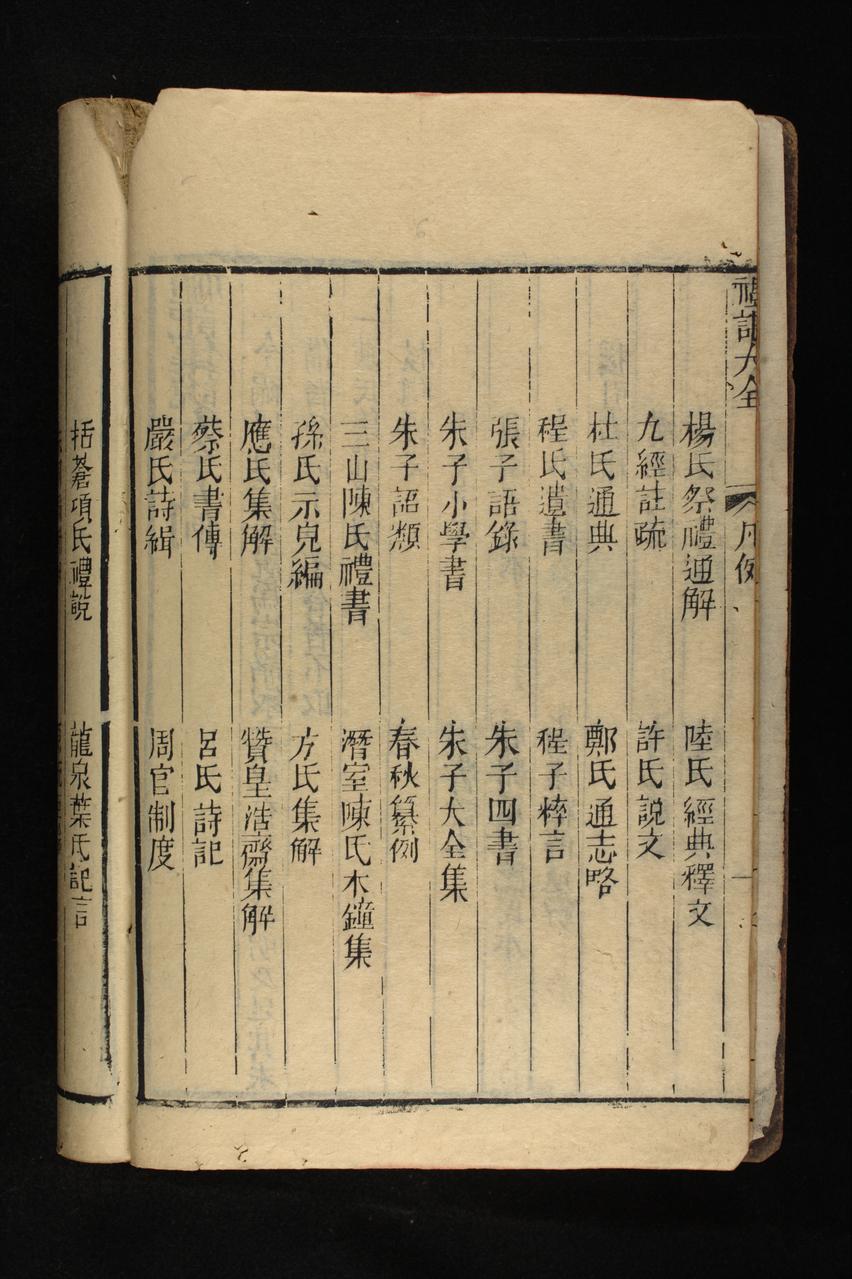 禮記大全
凡例
一
楊氏祭禮通解 陸氏經典釋文
九經註疏 許氏說文
杜氏通典 鄭氏通志略
程氏遺書 程子粹言
張子語錄 朱子四書
朱子小學書 朱子大全集
朱子語類 春秋纂例
三山陳氏禮書 潛室陳氏木鐘集
孫氏示兒編 方氏集解
應氏集解 贊皇浩齋集解
蔡氏書傳 呂氏詩記
嚴氏詩緝 周官制度
括蒼項氏禮說 龍泉葉氏記言